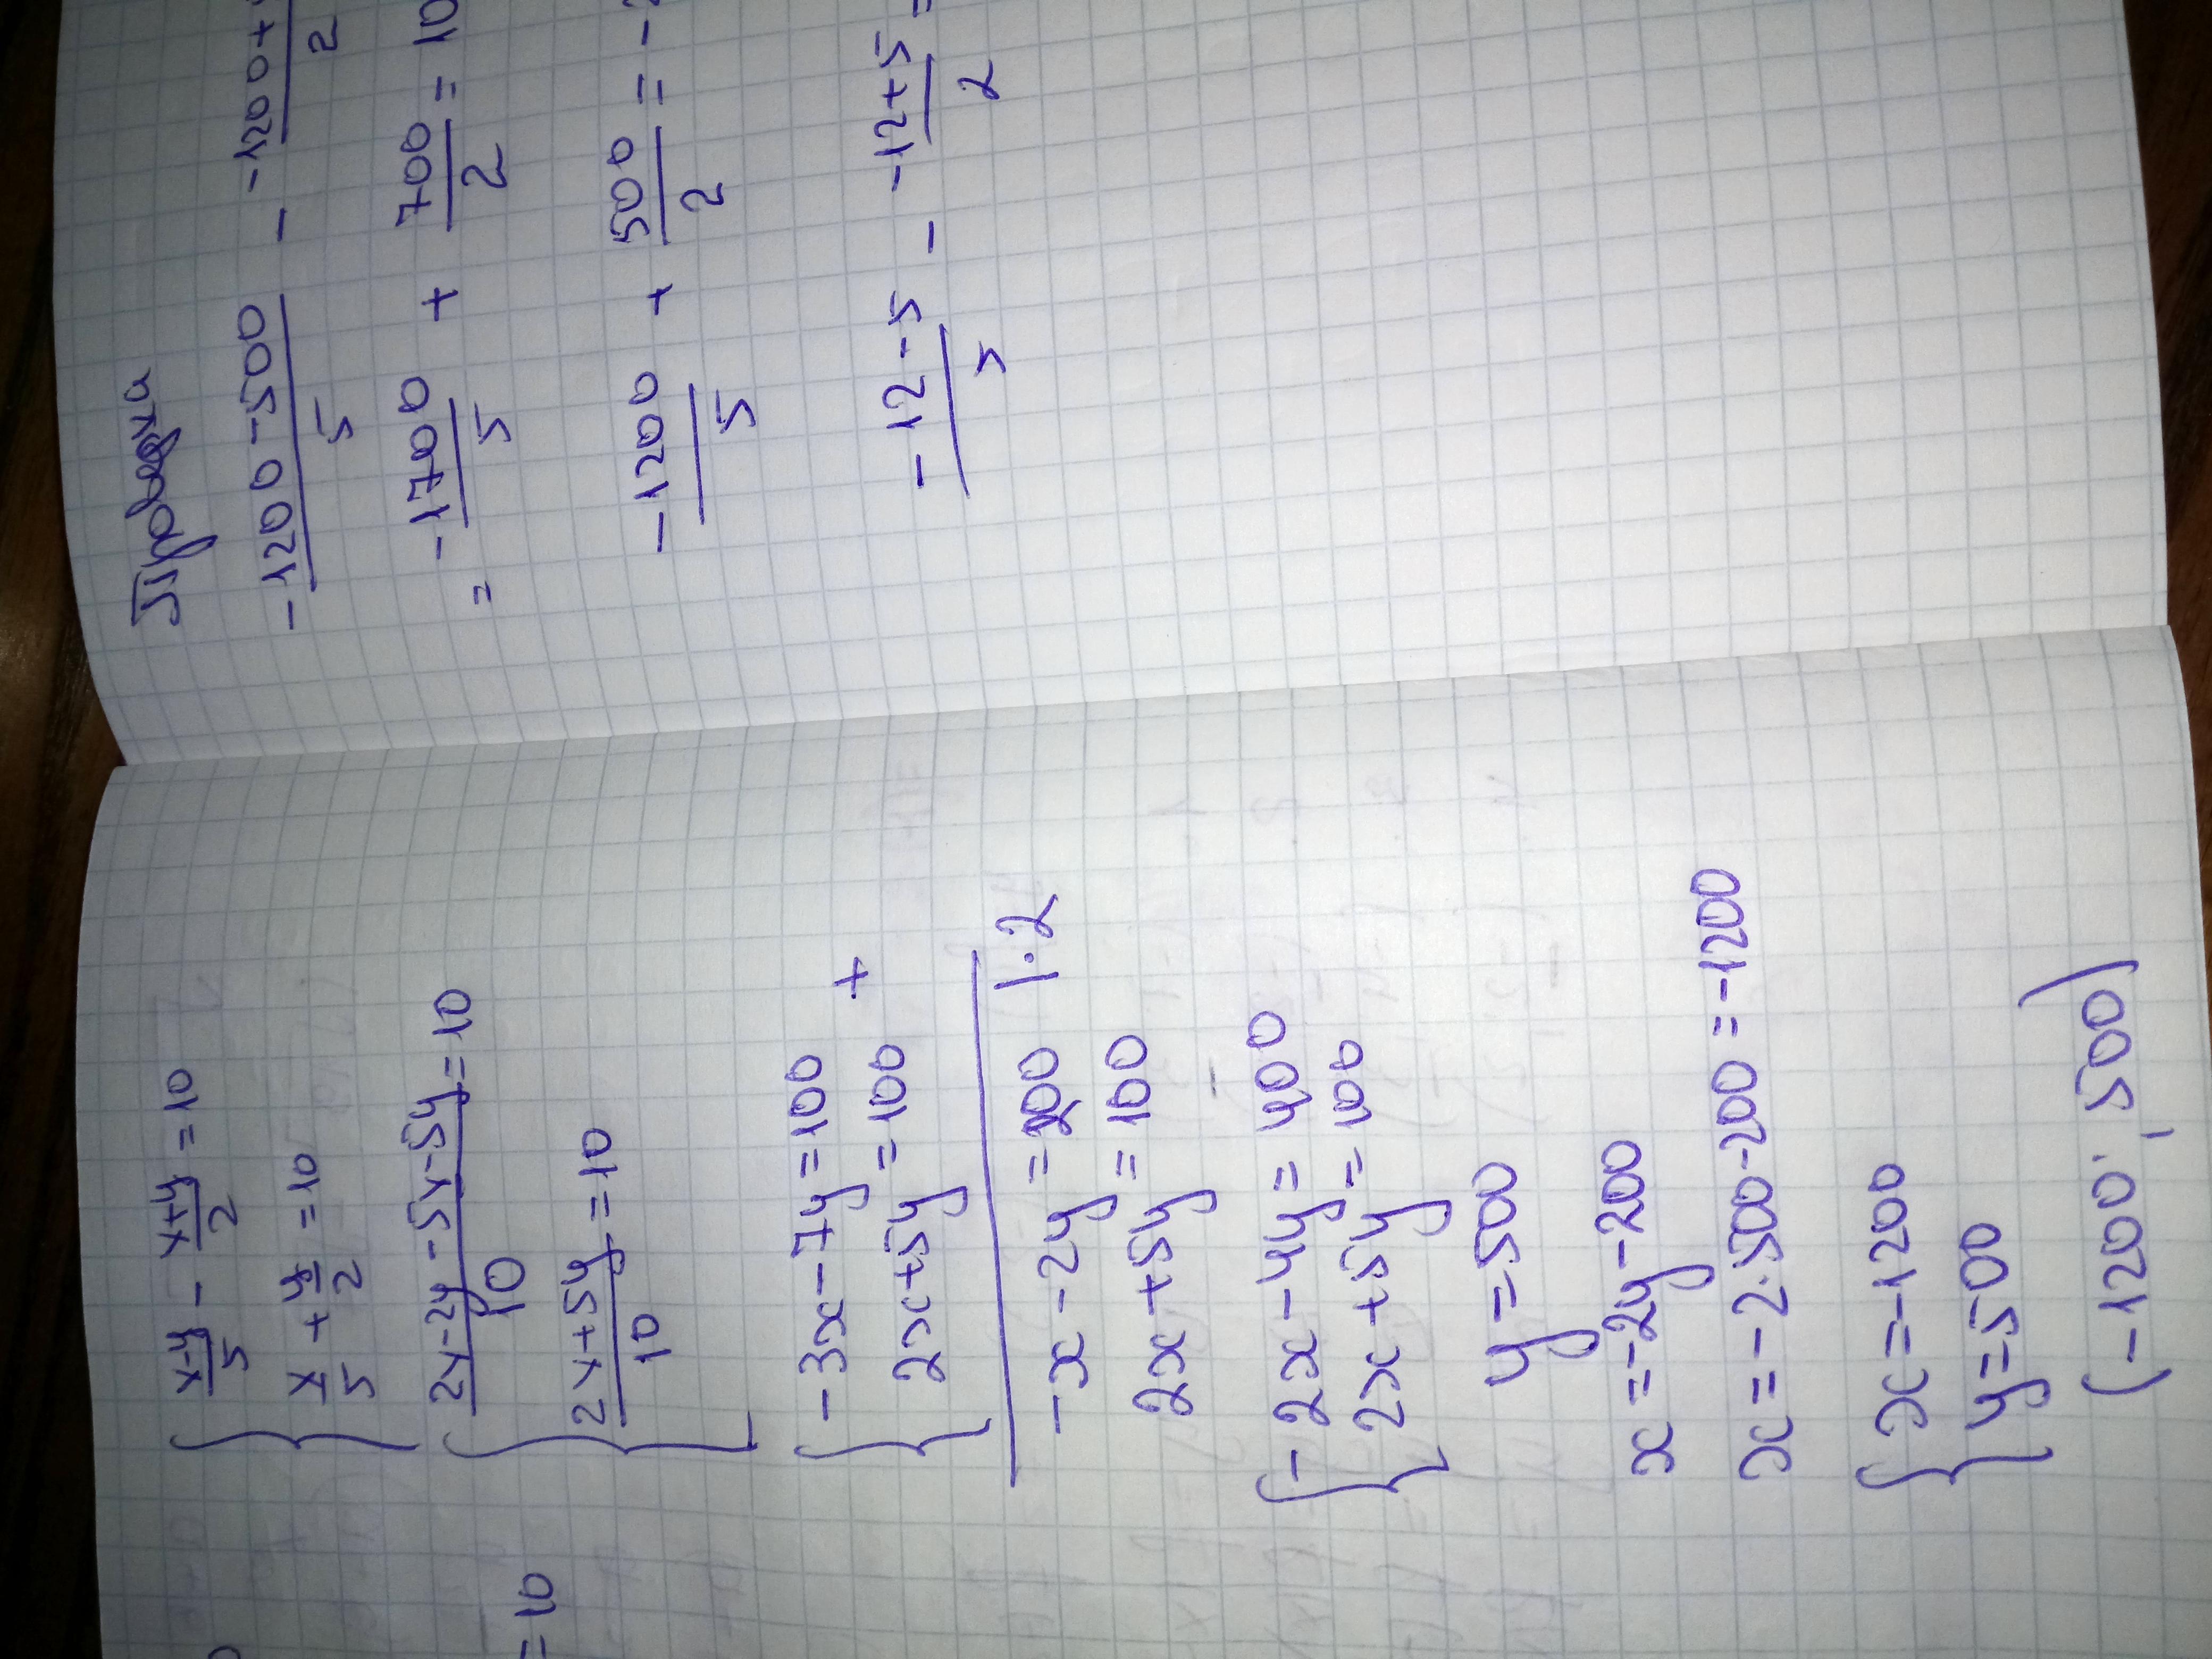 = 10
{ x-y/5 - x+y/2 = 10
x/5 + y/2 = 10
{ 2x-2y-5x-5y/10 = 10
2x+5y/10 = 10
{ -3x-7y=100 +
2x+5y=100
-x-2y=200 |·2
2x+5y=100
{ -2x-4y=400
2x+5y=100
y=500
x=-2y-200
x=-2·500-200=-1200
{ x=-1200
y=500
(-1200; 500)
Проверка
-1200-500/5 - -1200+/2
= -1700/5 + 700/2 = 10
-1200/5 + 500/2 = -
-12-5/5 - -12+5/2 =